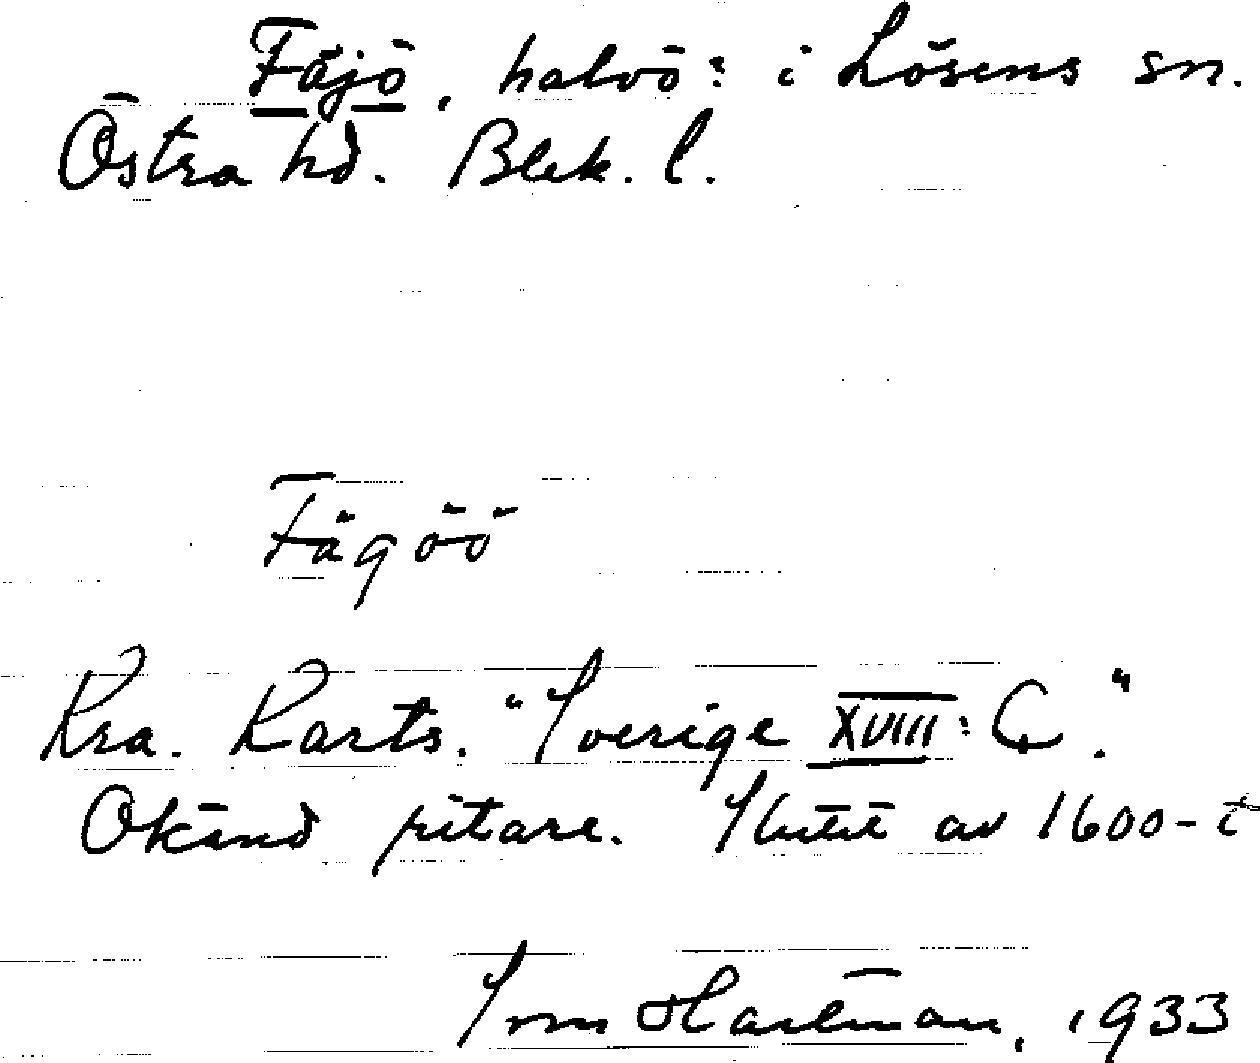 Fäjö, halvö: i Lösens sn.
Östra hd. Blek. l.
Fägöö
Kra. Karts. "Sverige XVIII: C."
Okänd ritare. Slutet av 1600-t
Hartman, 1933